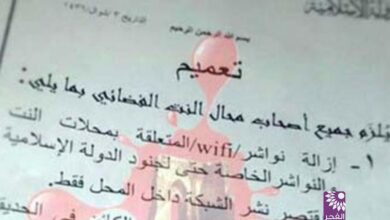 بسم الله الرحمن الرحيم
تعميم
يلزم جميع أصحاب محال النت الفضائي بما يلي:
١- إزالة نواشر/wifi/المتعلقة بمحلات النت
النواشر الخاصة حتى لجنود الدولة الإسلامية
نشر الشبكة داخل المحل فقط.
الفجر